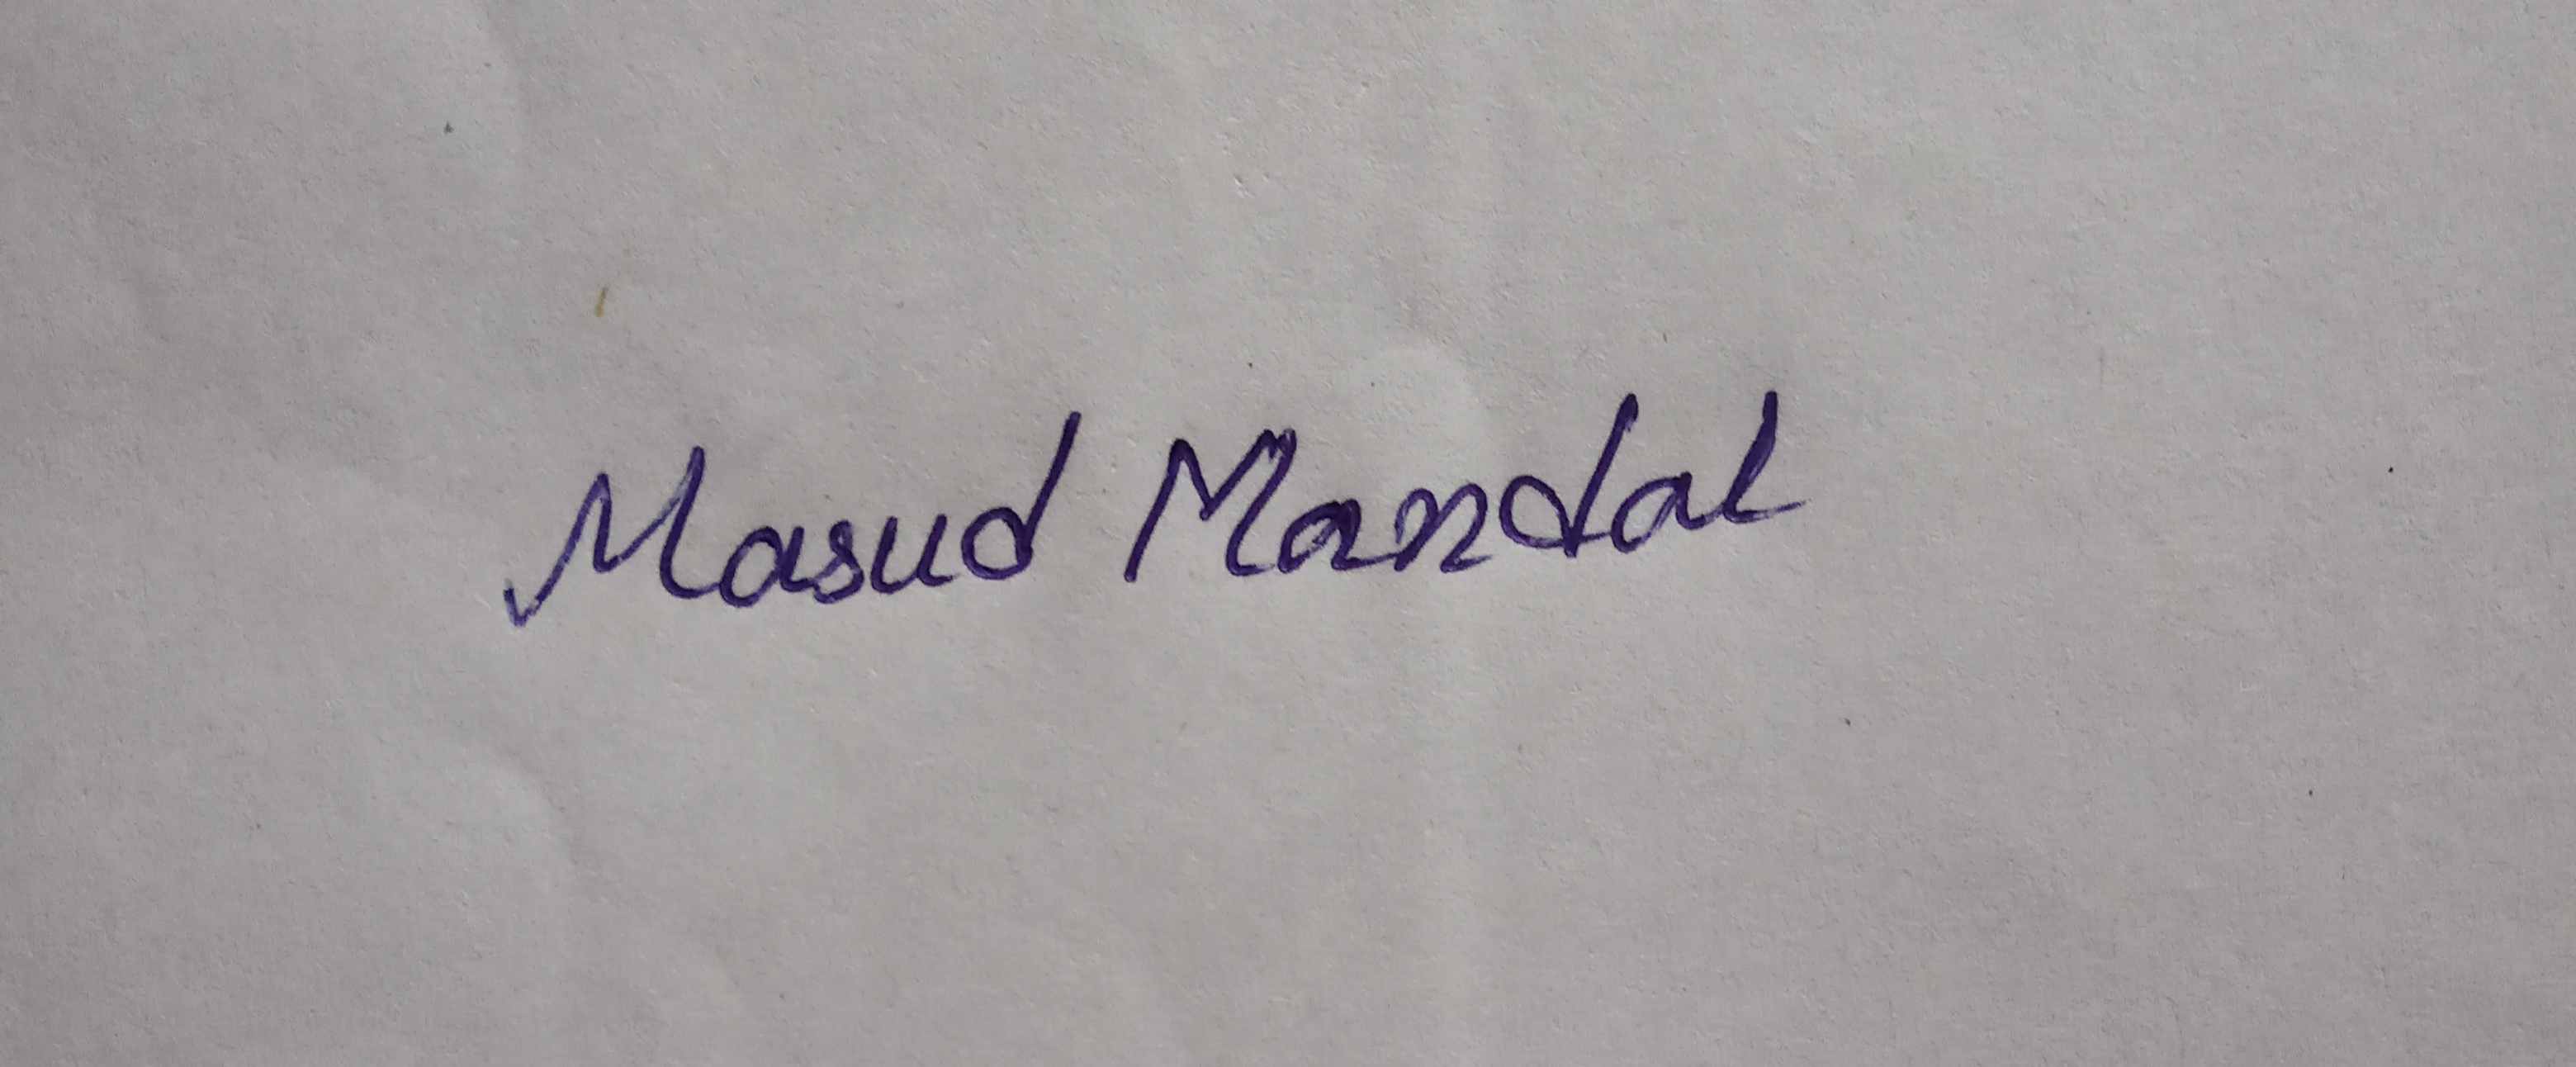 Masud Mandal